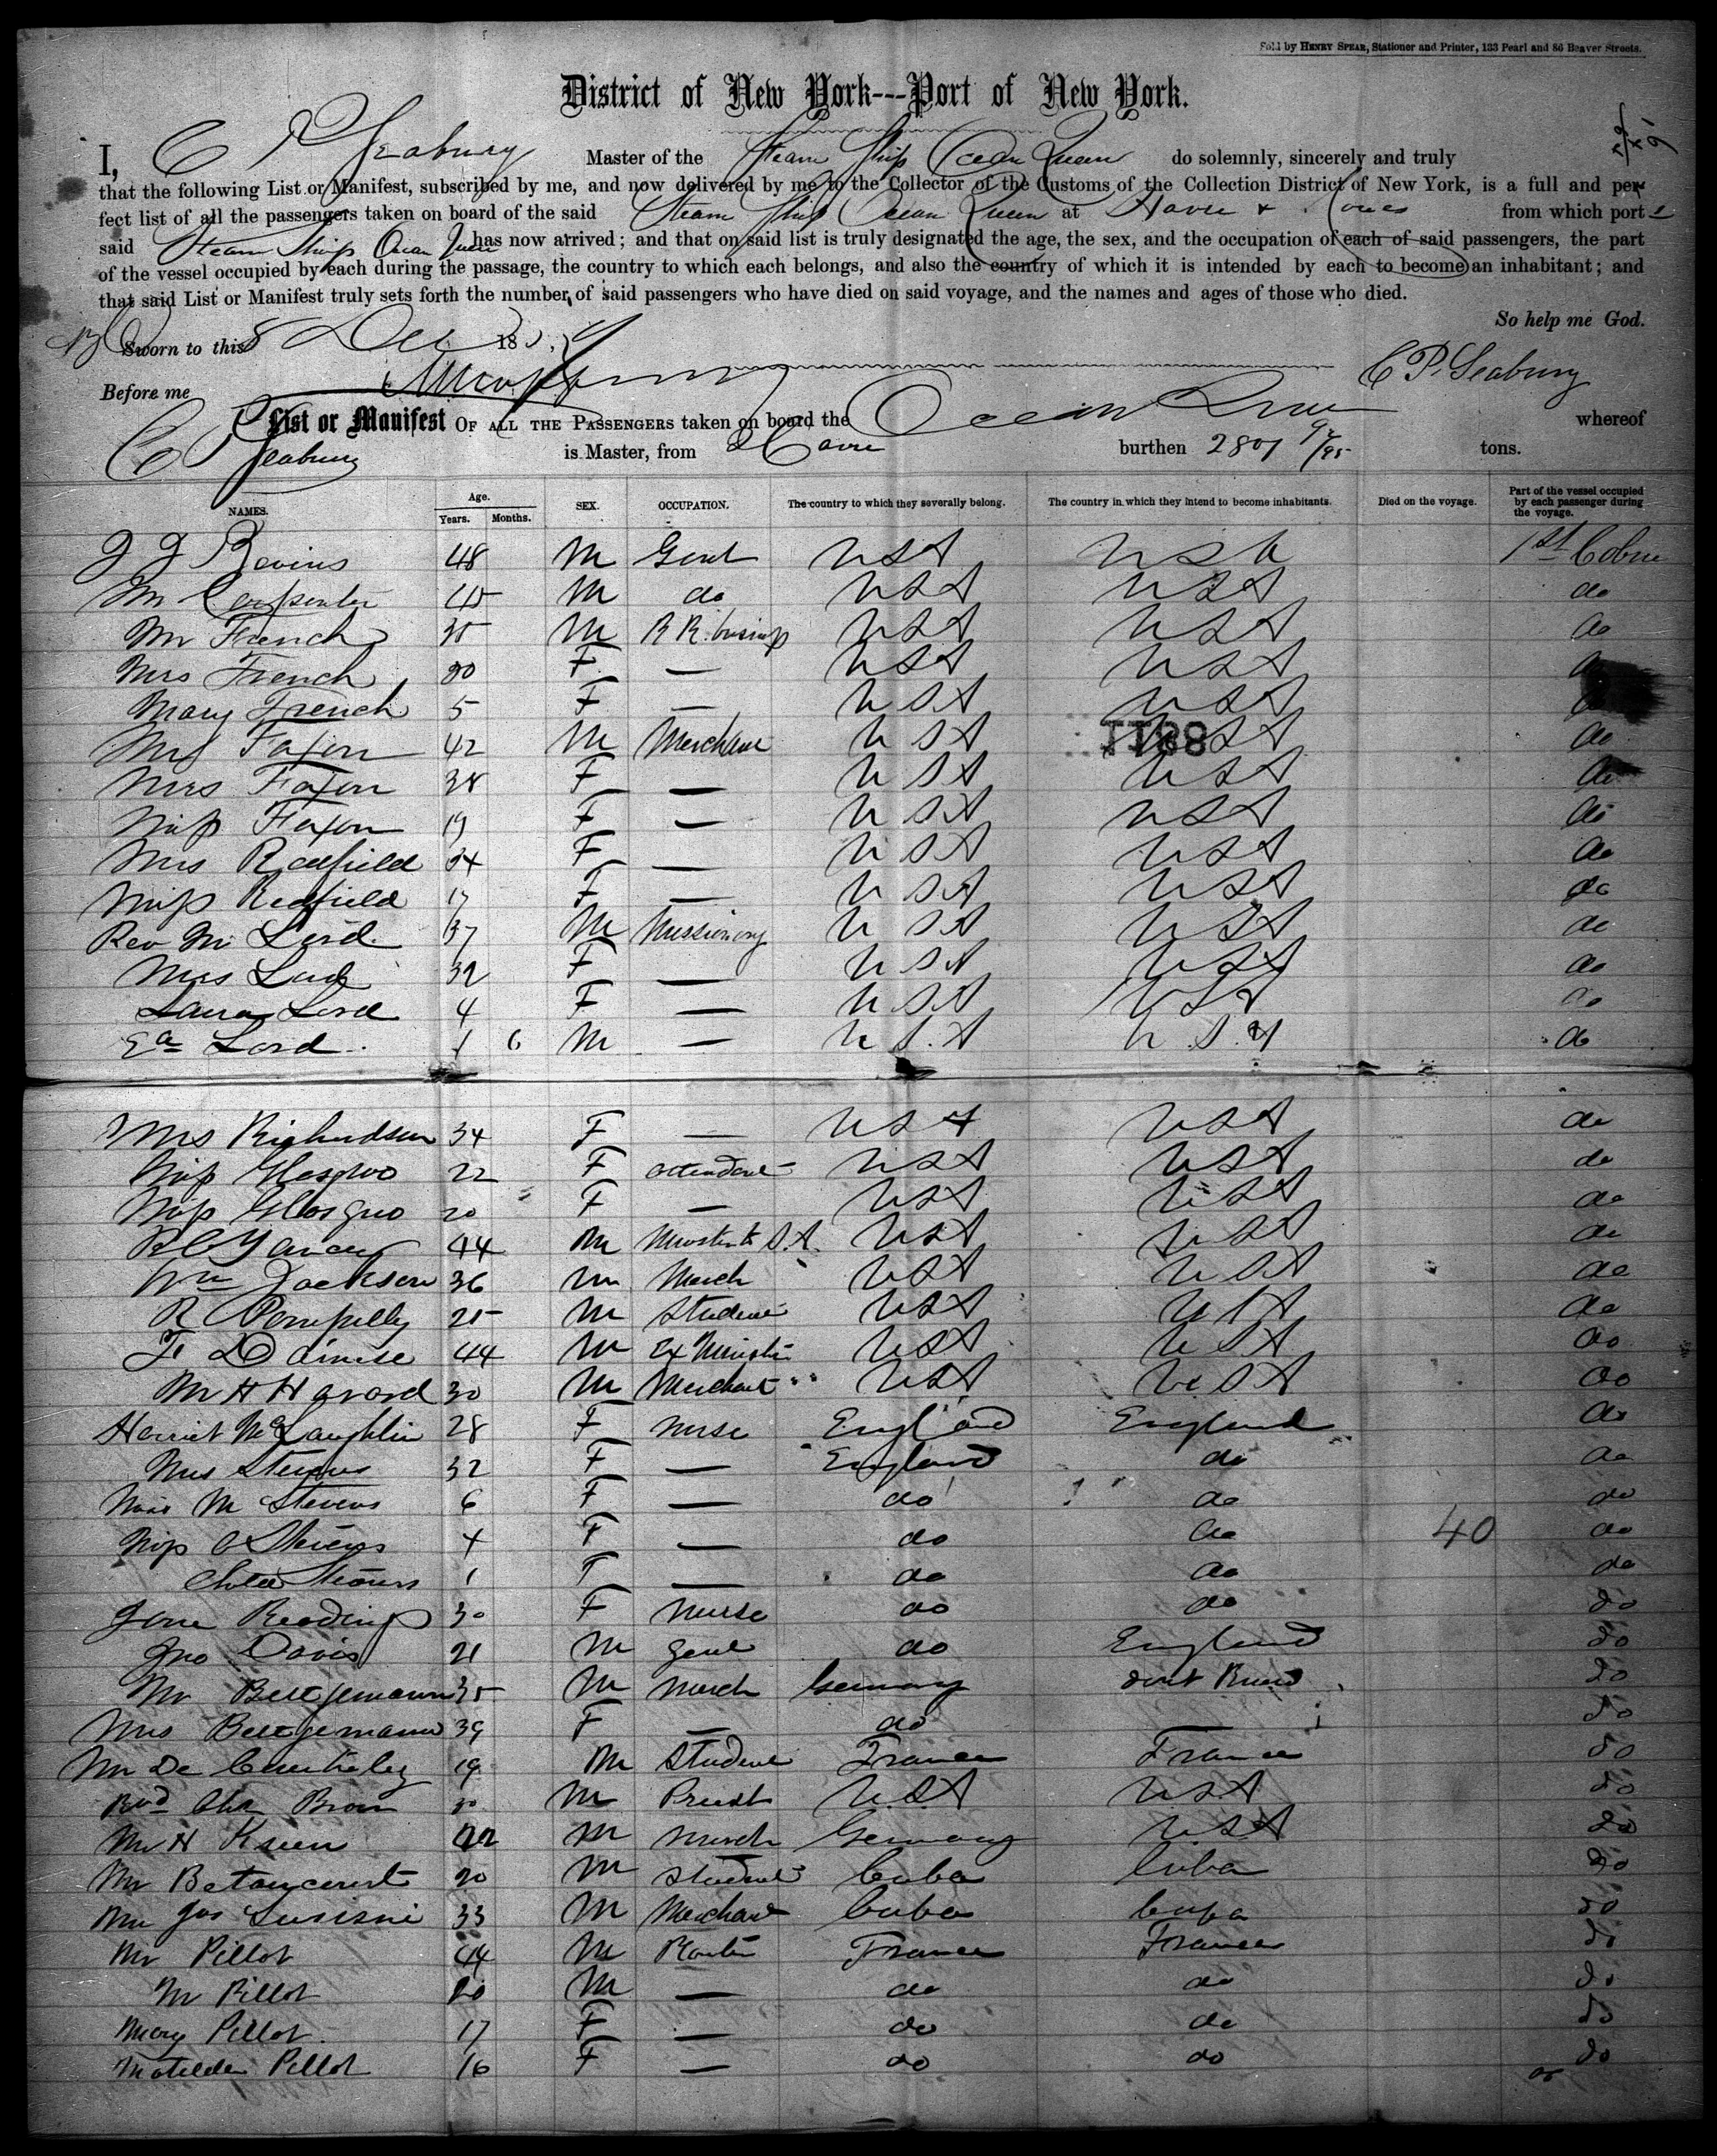 Sold by HENRY SPEAR, Stationer and Printer, 133 Pearl and 86 Beaver Streets.
District of New York---Port of New York.
I, C P Seabury Master of the Steam Ship Ocean Queen do solemnly, sincerely and truly
that the following List or Manifest, subscribed by me, and now delivered by me to the Collector of the Customs of the Collection District of New York, is a full and per-
fect list of all the passengers taken on board of the said Steam Ship Ocean Queen at Havre & from which port
said Steam Ship Ocean Queen has now arrived; and that on said list is truly designated the age, the sex, and the occupation of each of said passengers, the part
of the vessel occupied by each during the passage, the country to which each belongs, and also the country of which it is intended by each to become an inhabitant; and
that said List or Manifest truly sets forth the number of said passengers who have died on said voyage, and the names and ages of those who died.
So help me God.
Sworn to this 8 Dec 18
C P. Seabury
Before me
List or Manifest OF ALL THE PASSENGERS taken on board the Ocean Queen whereof
C P Seabury is Master, from Havre burthen 2801 /95 tons.
NAMES. Age. Years. Months. SEX. OCCUPATION. The country to which they severally belong. The country in which they intend to become inhabitants. Died on the voyage. Part of the vessel occupied by each passenger during the voyage.
J J Bevins 48 M Gent USA USA 1st
Mr Carpenter 45 M do USA USA do
Mr French 35 M R R. USA USA do
Mrs French 30 F — USA USA do
Mary French 5 F — USA USA
Mr Faxon 42 M Merchant USA USA do
Mrs Faxon 38 F — USA USA do
Miss Faxon 19 F — USA USA do
Mrs Redfield 34 F — USA USA do
Miss Redfield 17 F — USA USA do
Rev Mr Lord 37 M Missionary USA USA do
Mrs Lord 32 F — USA USA do
Laura Lord 4 F — USA USA do
Ed Lord 1 6 M — U.S.A U.S.A do
Mrs Richardson 34 F — USA USA do
Miss 22 F attendant USA USA do
Miss 20 F — USA USA do
44 M USA USA do
Wm Jackson 36 M Merch USA USA do
R Pompelly 25 M Student USA USA do
F Dainese 44 M Ex Minister USA USA do
Mr H Havard 30 M Merchant USA USA do
Harriet McLaughlin 28 F nurse England England do
Mrs Stevens 32 F — England do do
Miss M Stevens 6 F — do do do
Miss C Stevens 4 F — do do 40 do
Stevens 1 F — do do do
Jane Reading 30 F nurse do do do
Jno Davis 21 M gent do England do
Mr 35 M Merch Germany dont know do
Mrs 39 F — do — do
Mr De 19 M Student France France do
Revd Chs 30 M Priest U.S.A USA do
Mr H 22 M Merch Germany USA do
Mr Betancourt 20 M Student Cuba Cuba do
Mr Jos 33 M Merchant Cuba Cuba do
Mr Pillot 44 M Planter France France do
Mr Pillot 20 M — do do do
Mary Pillot 17 F — do do do
Matilde Pillot 16 F — do do do